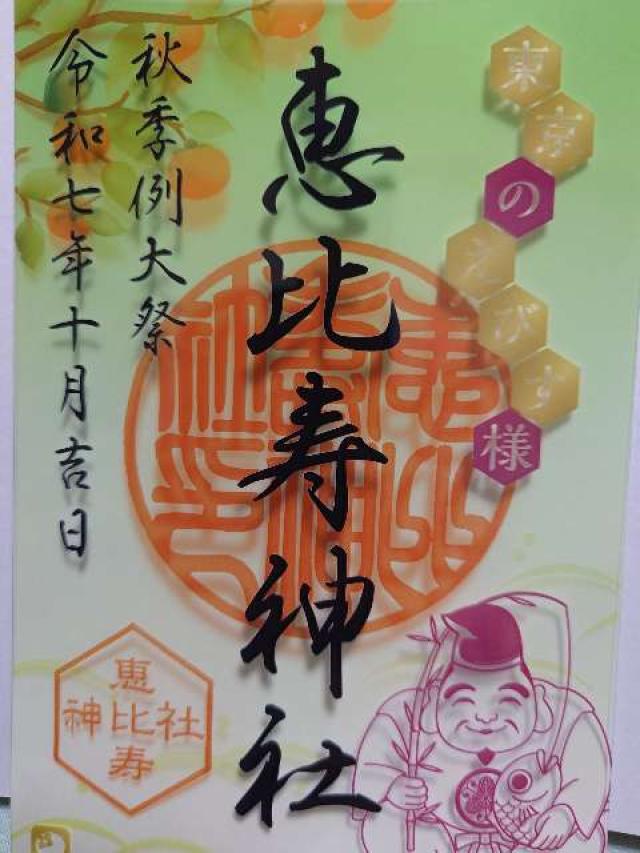 東京のえびす様
恵比寿神社
秋季例大祭
令和七年十月吉日
恵比寿
神比社